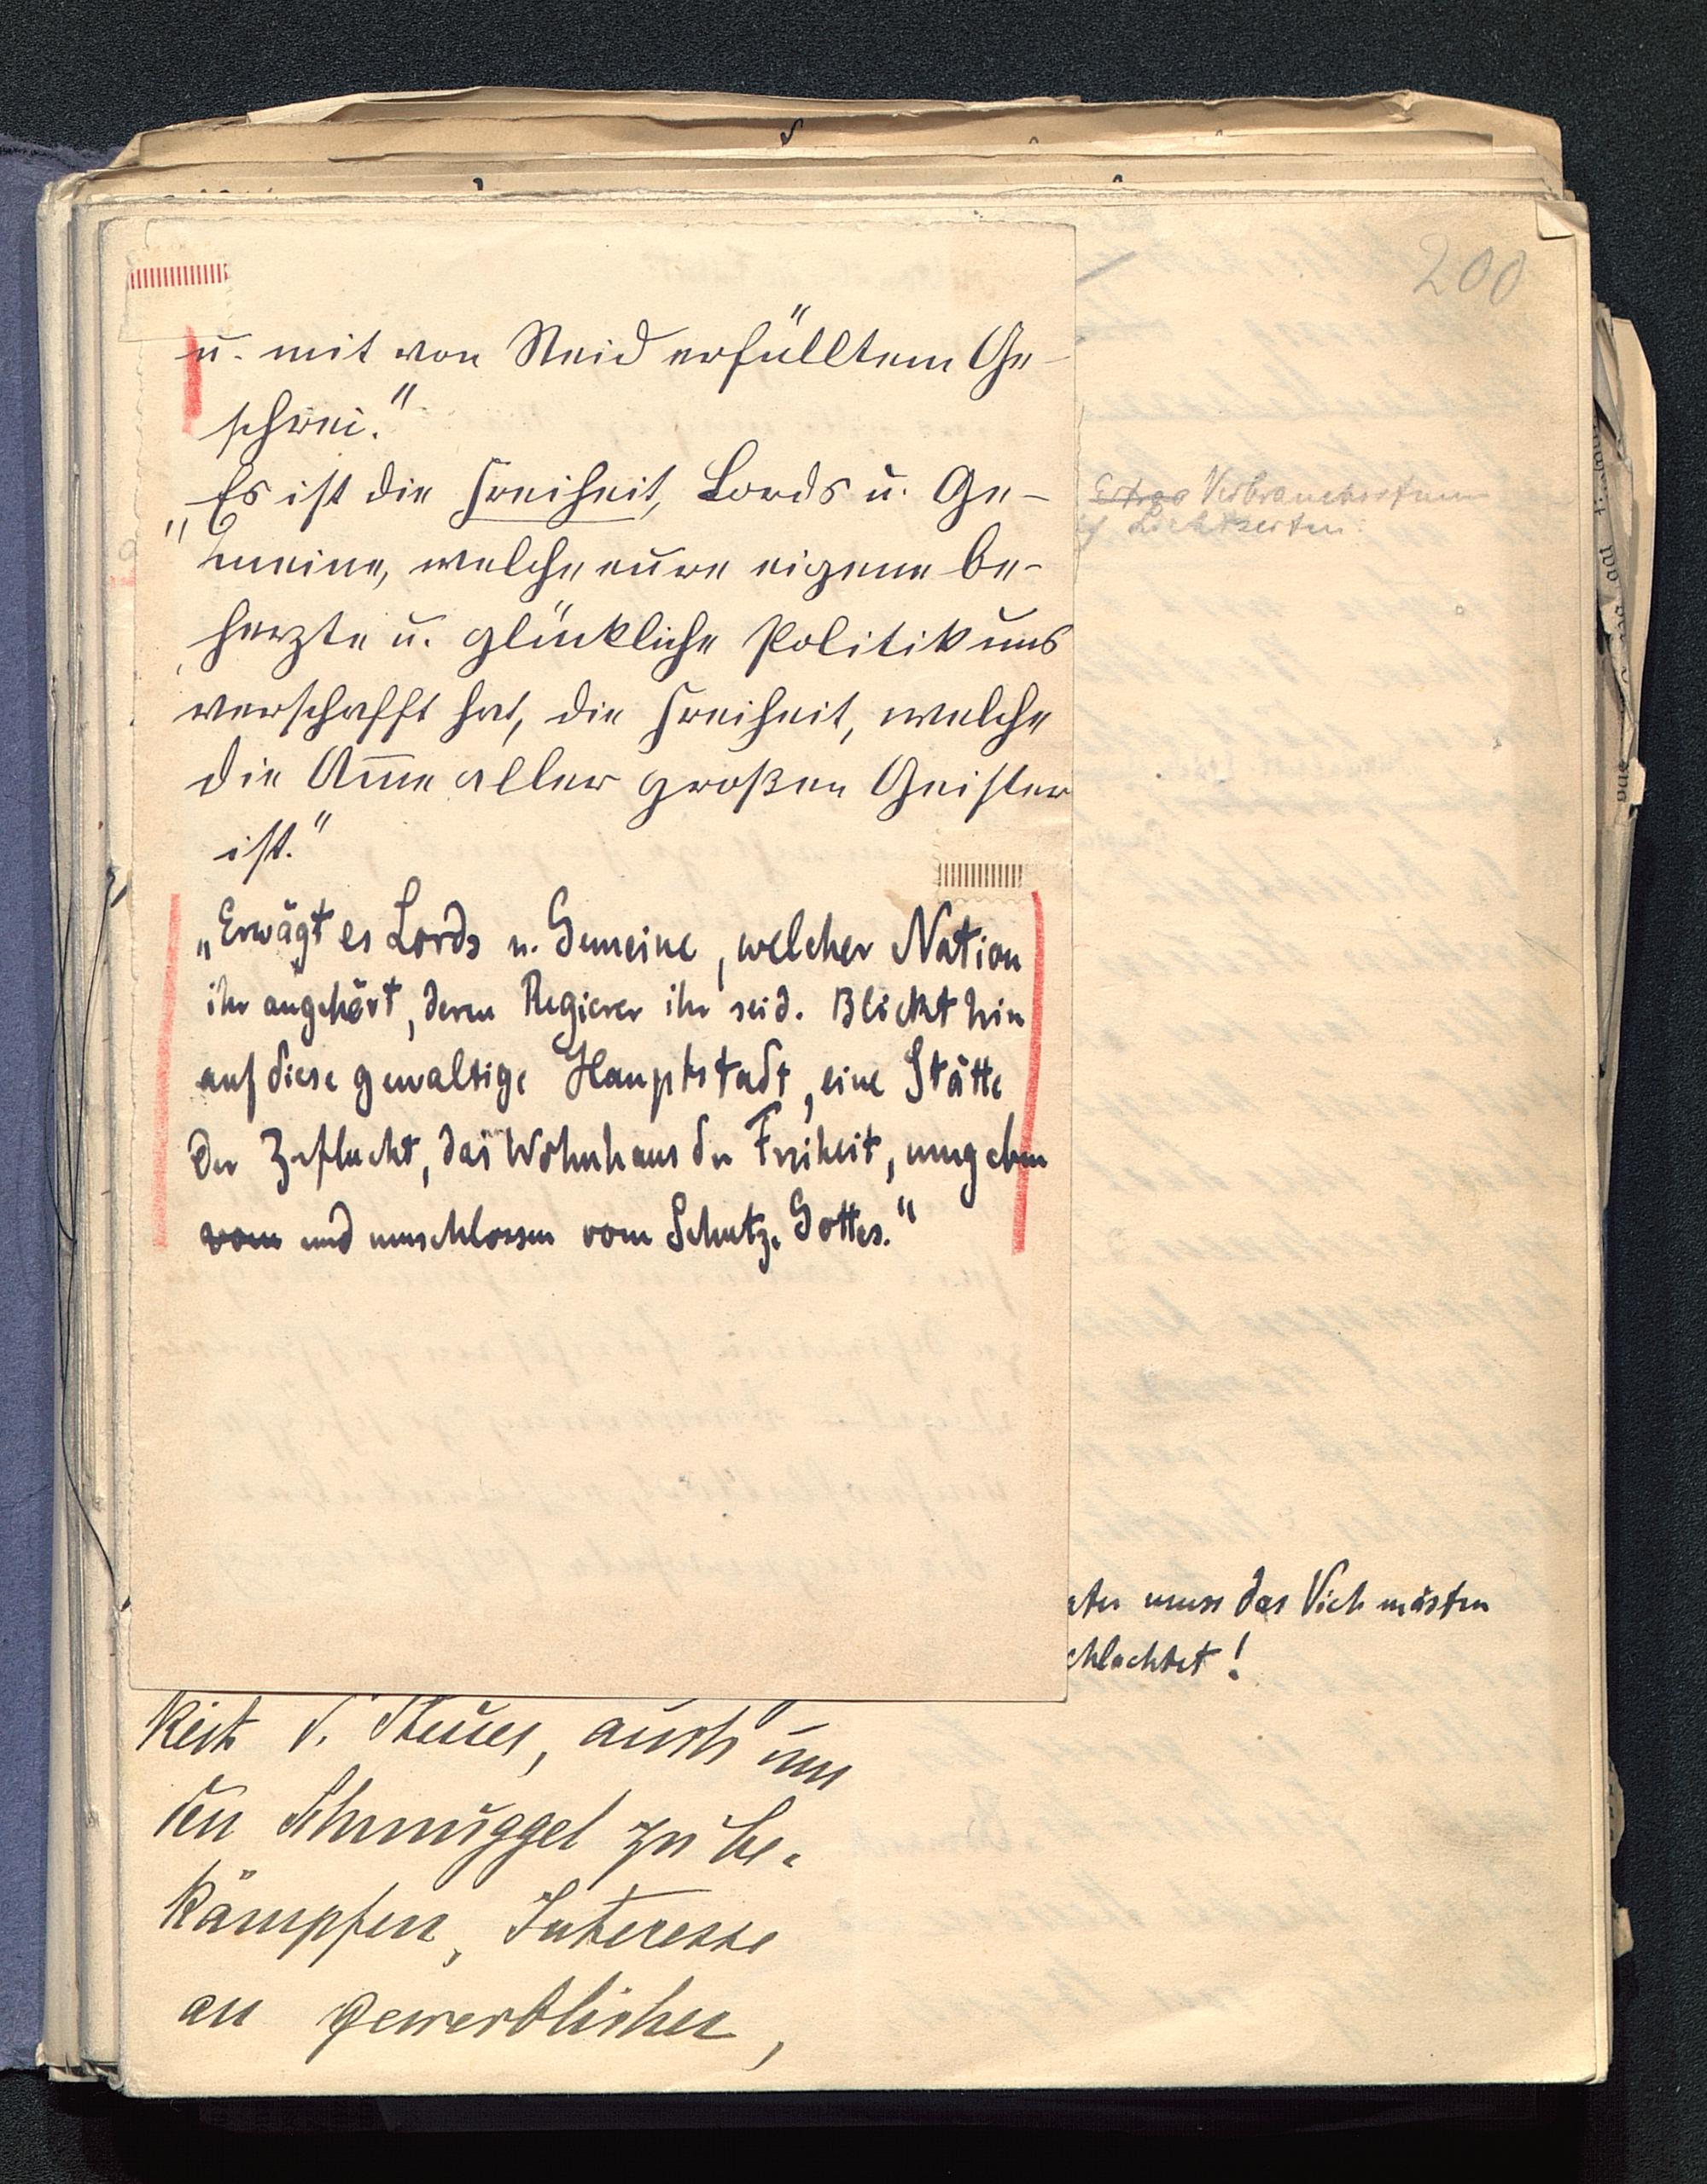 200
u. mit von Neid erfülltem Ge-
schrei."
„Es ist die Freiheit, Lords u. Ge-
meine, welche eure eigene be-
herzte u. glückliche Politik uns
verschafft hat, die Freiheit, welche
die Am̅e aller großen Geister
ist."
„Erwägt es Lords u. Gemeine, welcher Nation
ihr angehört, deren Regierer ihr seid. Blickt hin
auf diese gewaltige Hauptstadt, eine Stätte
der Zuflucht, das Wohnhaus der Freiheit, umgeben
vom und umschlossen vom Schutze Gottes."
Verbrauchssteuer
muss das Vieh mästen
schlachtet!
keit d. Steuer, auch um
den Schmuggel zu be-
kämpfen, Interesse
an gewerblicher,